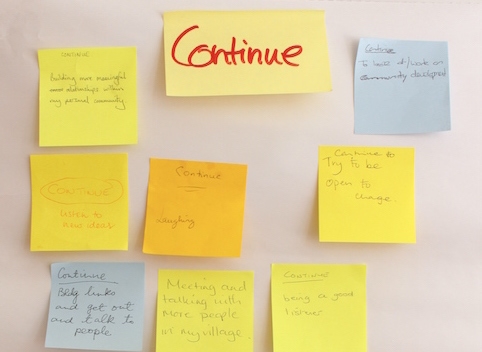 Continue
CONTINUE
Building more meaningful
relationships within
my personal community
Continue
To look at/work on
community developed
CONTINUE
Listen to
new ideas
Continue
Laughing
Continue to
Try to be
open to
change.
Continue
Bldg links
and get out
and talk to
people
Meeting and
talking with
more people
in my village.
CONTINUE
being a good
listener